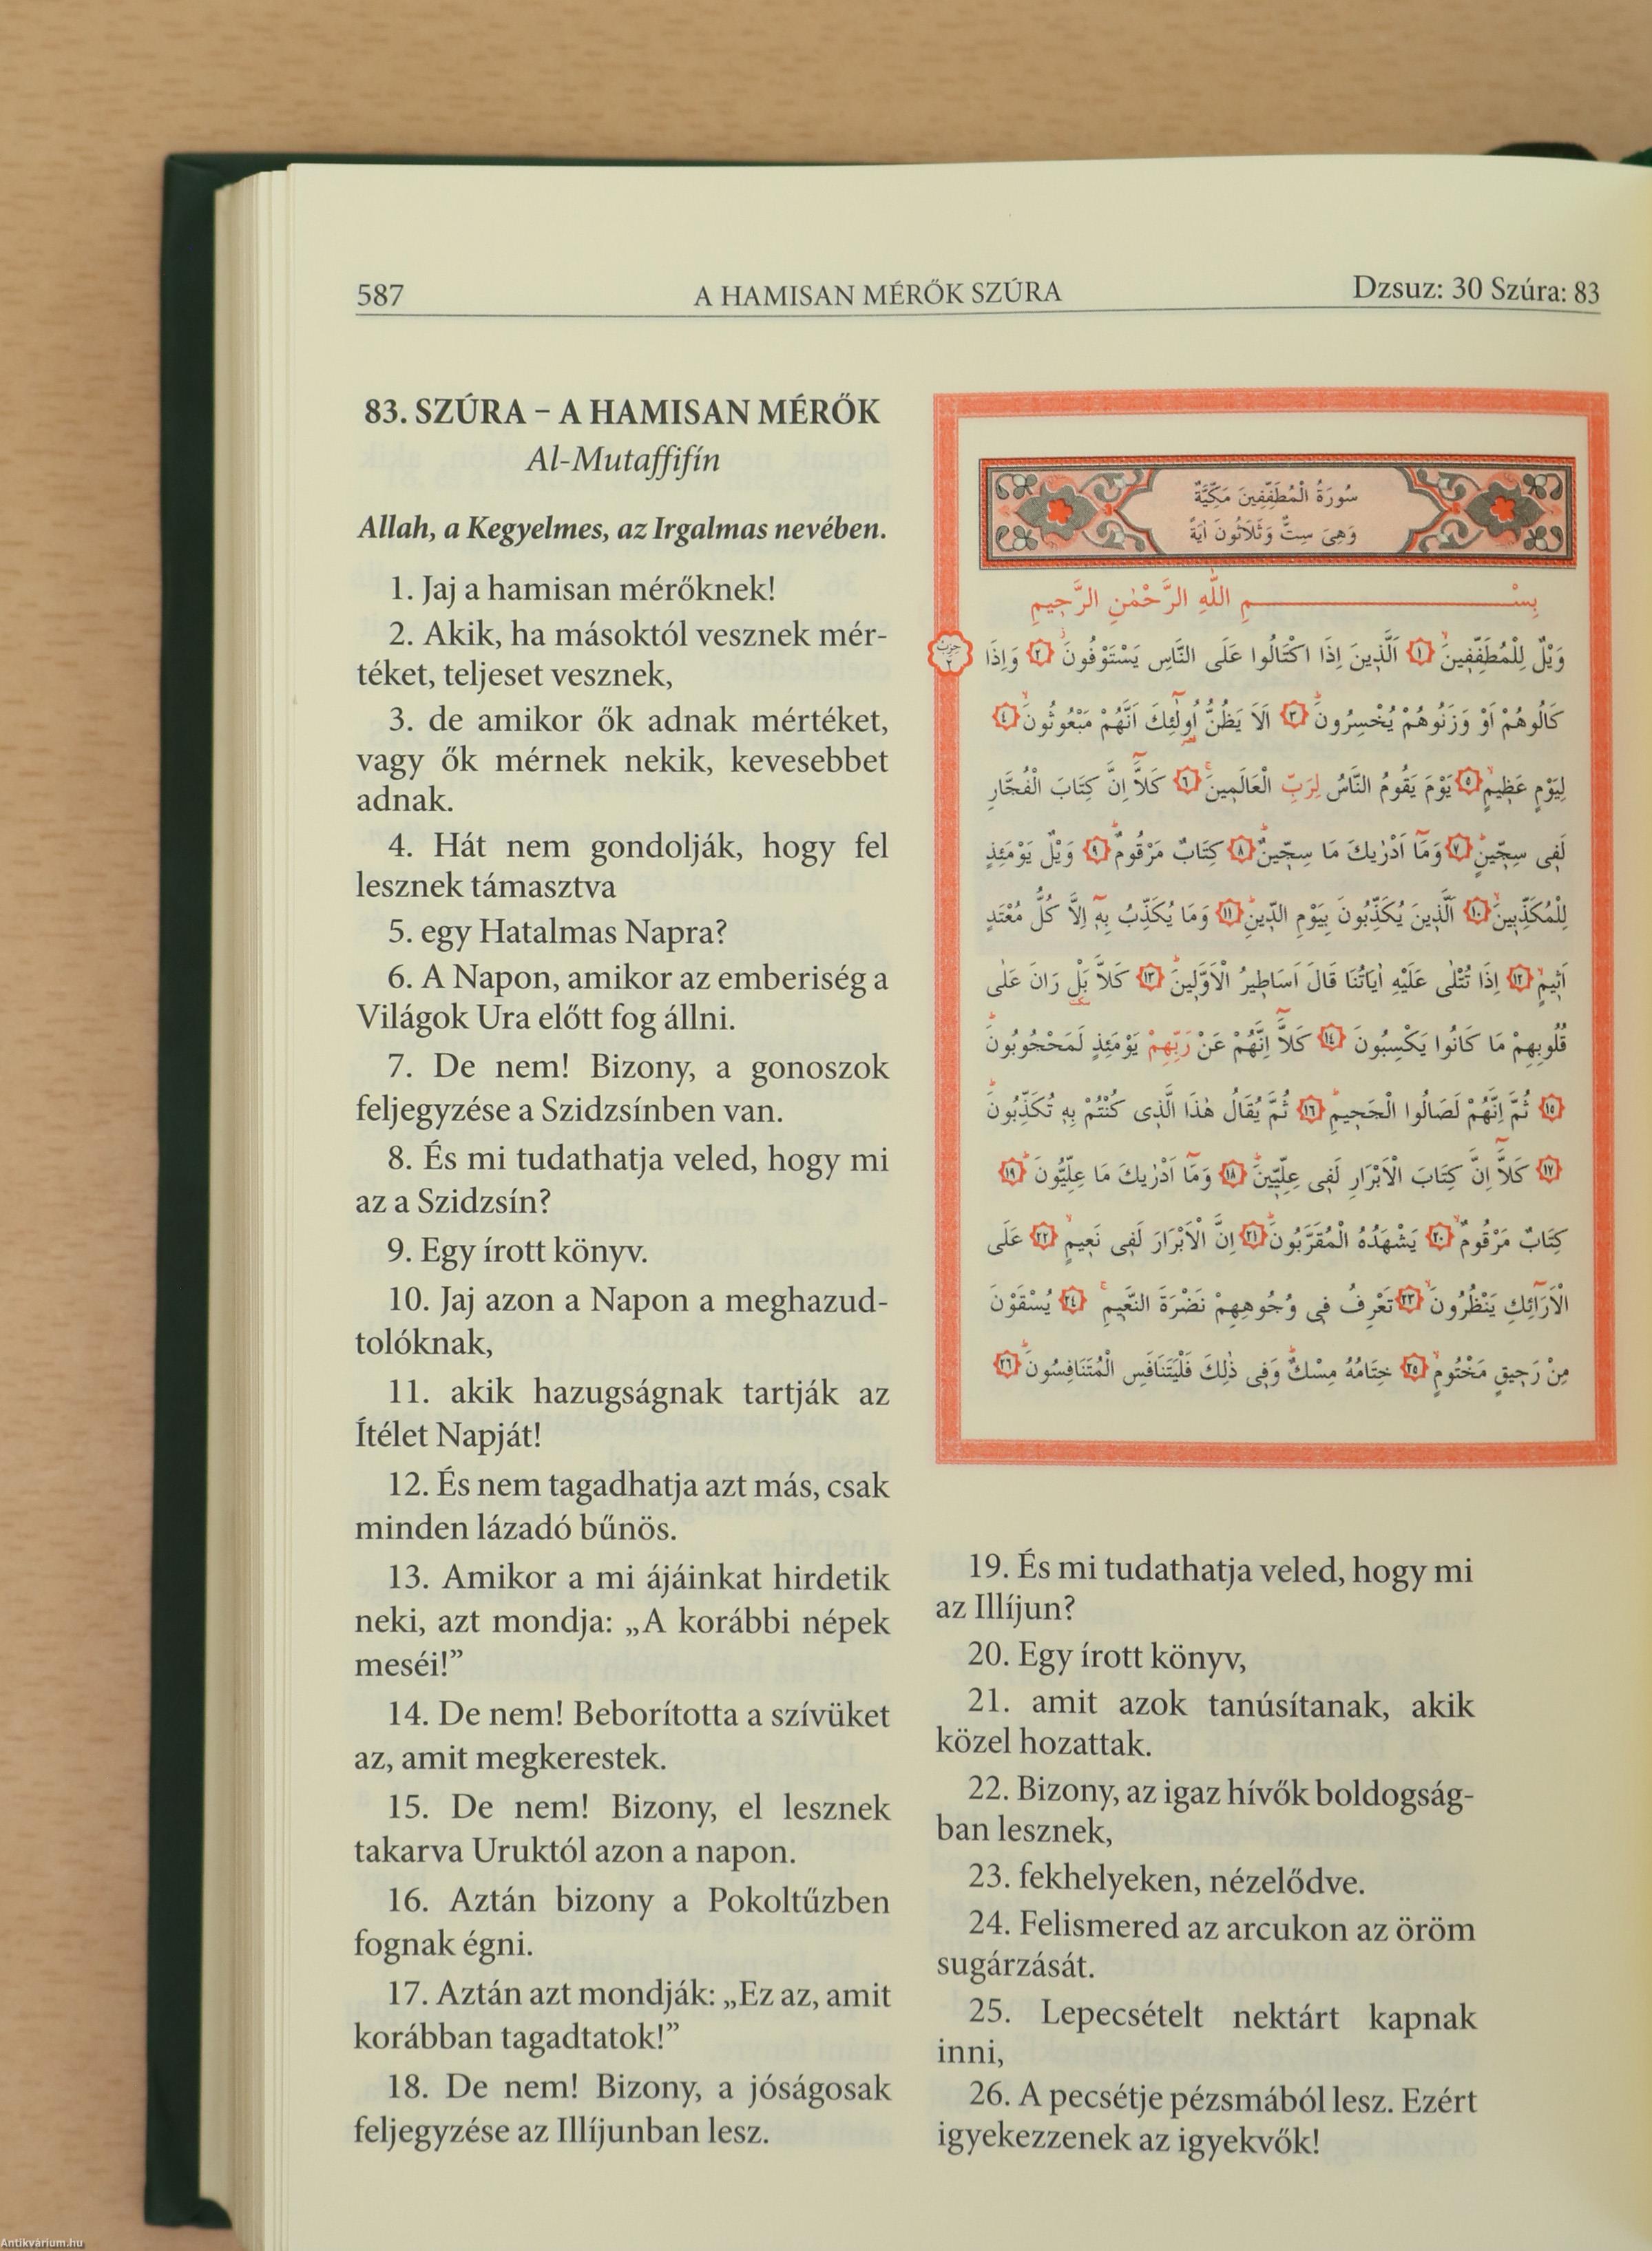 587 A HAMISAN MÉRŐK SZÚRA Dzsuz: 30 Szúra: 83
83. SZÚRA – A HAMISAN MÉRŐK
Al-Mutaffifín
Allah, a Kegyelmes, az Irgalmas nevében.
1. Jaj a hamisan mérőknek!
2. Akik, ha másoktól vesznek mér-
téket, teljeset vesznek,
3. de amikor ők adnak mértéket,
vagy ők mérnek nekik, kevesebbet
adnak.
4. Hát nem gondolják, hogy fel
lesznek támasztva
5. egy Hatalmas Napra?
6. A Napon, amikor az emberiség a
Világok Ura előtt fog állni.
7. De nem! Bizony, a gonoszok
feljegyzése a Szidzsínben van.
8. És mi tudathatja veled, hogy mi
az a Szidzsín?
9. Egy írott könyv.
10. Jaj azon a Napon a meghazud-
tolóknak,
11. akik hazugságnak tartják az
Ítélet Napját!
12. És nem tagadhatja azt más, csak
minden lázadó bűnös.
13. Amikor a mi ájáinkat hirdetik
neki, azt mondja: „A korábbi népek
meséi!”
14. De nem! Beborította a szívüket
az, amit megkerestek.
15. De nem! Bizony, el lesznek
takarva Uruktól azon a napon.
16. Aztán bizony a Pokoltűzben
fognak égni.
17. Aztán azt mondják: „Ez az, amit
korábban tagadtatok!”
18. De nem! Bizony, a jóságosak
feljegyzése az Illíjunban lesz.
سُورَةُ الْمُطَفِّفِينَ مَكِّيَّةٌ
وَهِىَ سِتٌّ وَثَلَاثُونَ اٰيَةً
بِسْمِ اللّٰهِ الرَّحْمٰنِ الرَّحِيمِ
حِزْبْ
٢
وَيْلٌ لِلْمُطَفِّفِينَۙ ١ اَلَّذِينَ اِذَا اكْتَالُوا عَلَى النَّاسِ يَسْتَوْفُونَۘ ٢ وَاِذَا
كَالُوهُمْ اَوْ وَزَنُوهُمْ يُخْسِرُونَۜ ٣ اَلَا يَظُنُّ اُولٰٓئِكَ اَنَّهُمْ مَبْعُوثُونَۙ ٤
لِيَوْمٍ عَظِيمٍۙ ٥ يَوْمَ يَقُومُ النَّاسُ لِرَبِّ الْعَالَمِينَۜ ٦ كَلَّٓا اِنَّ كِتَابَ الْفُجَّارِ
لَفِى سِجِّينٍۜ ٧ وَمَٓا اَدْرٰيكَ مَا سِجِّينٌۜ ٨ كِتَابٌ مَرْقُومٌۜ ٩ وَيْلٌ يَوْمَئِذٍ
لِلْمُكَذِّبِينَۙ ١٠ اَلَّذِينَ يُكَذِّبُونَ بِيَوْمِ الدِّينِۜ ١١ وَمَا يُكَذِّبُ بِهِٓ اِلَّا كُلُّ مُعْتَدٍ
اَثِيمٍۙ ١٢ اِذَا تُتْلٰى عَلَيْهِ اٰيَاتُنَا قَالَ اَسَاطِيرُ الْاَوَّلِينَۜ ١٣ كَلَّا بَلْ رَانَ عَلٰى
قُلُوبِهِمْ مَا كَانُوا يَكْسِبُونَ ١٤ كَلَّٓا اِنَّهُمْ عَنْ رَبِّهِمْ يَوْمَئِذٍ لَمَحْجُوبُونَۜ
١٥ ثُمَّ اِنَّهُمْ لَصَالُوا الْجَحِيمِۜ ١٦ ثُمَّ يُقَالُ هٰذَا الَّذِى كُنْتُمْ بِهِ تُكَذِّبُونَۜ
١٧ كَلَّٓا اِنَّ كِتَابَ الْاَبْرَارِ لَفِى عِلِّيِّينَۜ ١٨ وَمَٓا اَدْرٰيكَ مَا عِلِّيُّونَۜ ١٩
كِتَابٌ مَرْقُومٌۙ ٢٠ يَشْهَدُهُ الْمُقَرَّبُونَۜ ٢١ اِنَّ الْاَبْرَارَ لَفِى نَعِيمٍۙ ٢٢ عَلَى
الْاَرَٓائِكِ يَنْظُرُونَۙ ٢٣ تَعْرِفُ فِى وُجُوهِهِمْ نَضْرَةَ النَّعِيمِۚ ٢٤ يُسْقَوْنَ
مِنْ رَحِيقٍ مَخْتُومٍۙ ٢٥ خِتَامُهُ مِسْكٌۜ وَفِى ذٰلِكَ فَلْيَتَنَافَسِ الْمُتَنَافِسُونَۜ ٢٦
19. És mi tudathatja veled, hogy mi
az Illíjun?
20. Egy írott könyv,
21. amit azok tanúsítanak, akik
közel hozattak.
22. Bizony, az igaz hívők boldogság-
ban lesznek,
23. fekhelyeken, nézelődve.
24. Felismered az arcukon az öröm
sugárzását.
25. Lepecsételt nektárt kapnak
inni,
26. A pecsétje pézsmából lesz. Ezért
igyekezzenek az igyekvők!
Antikvárium.hu